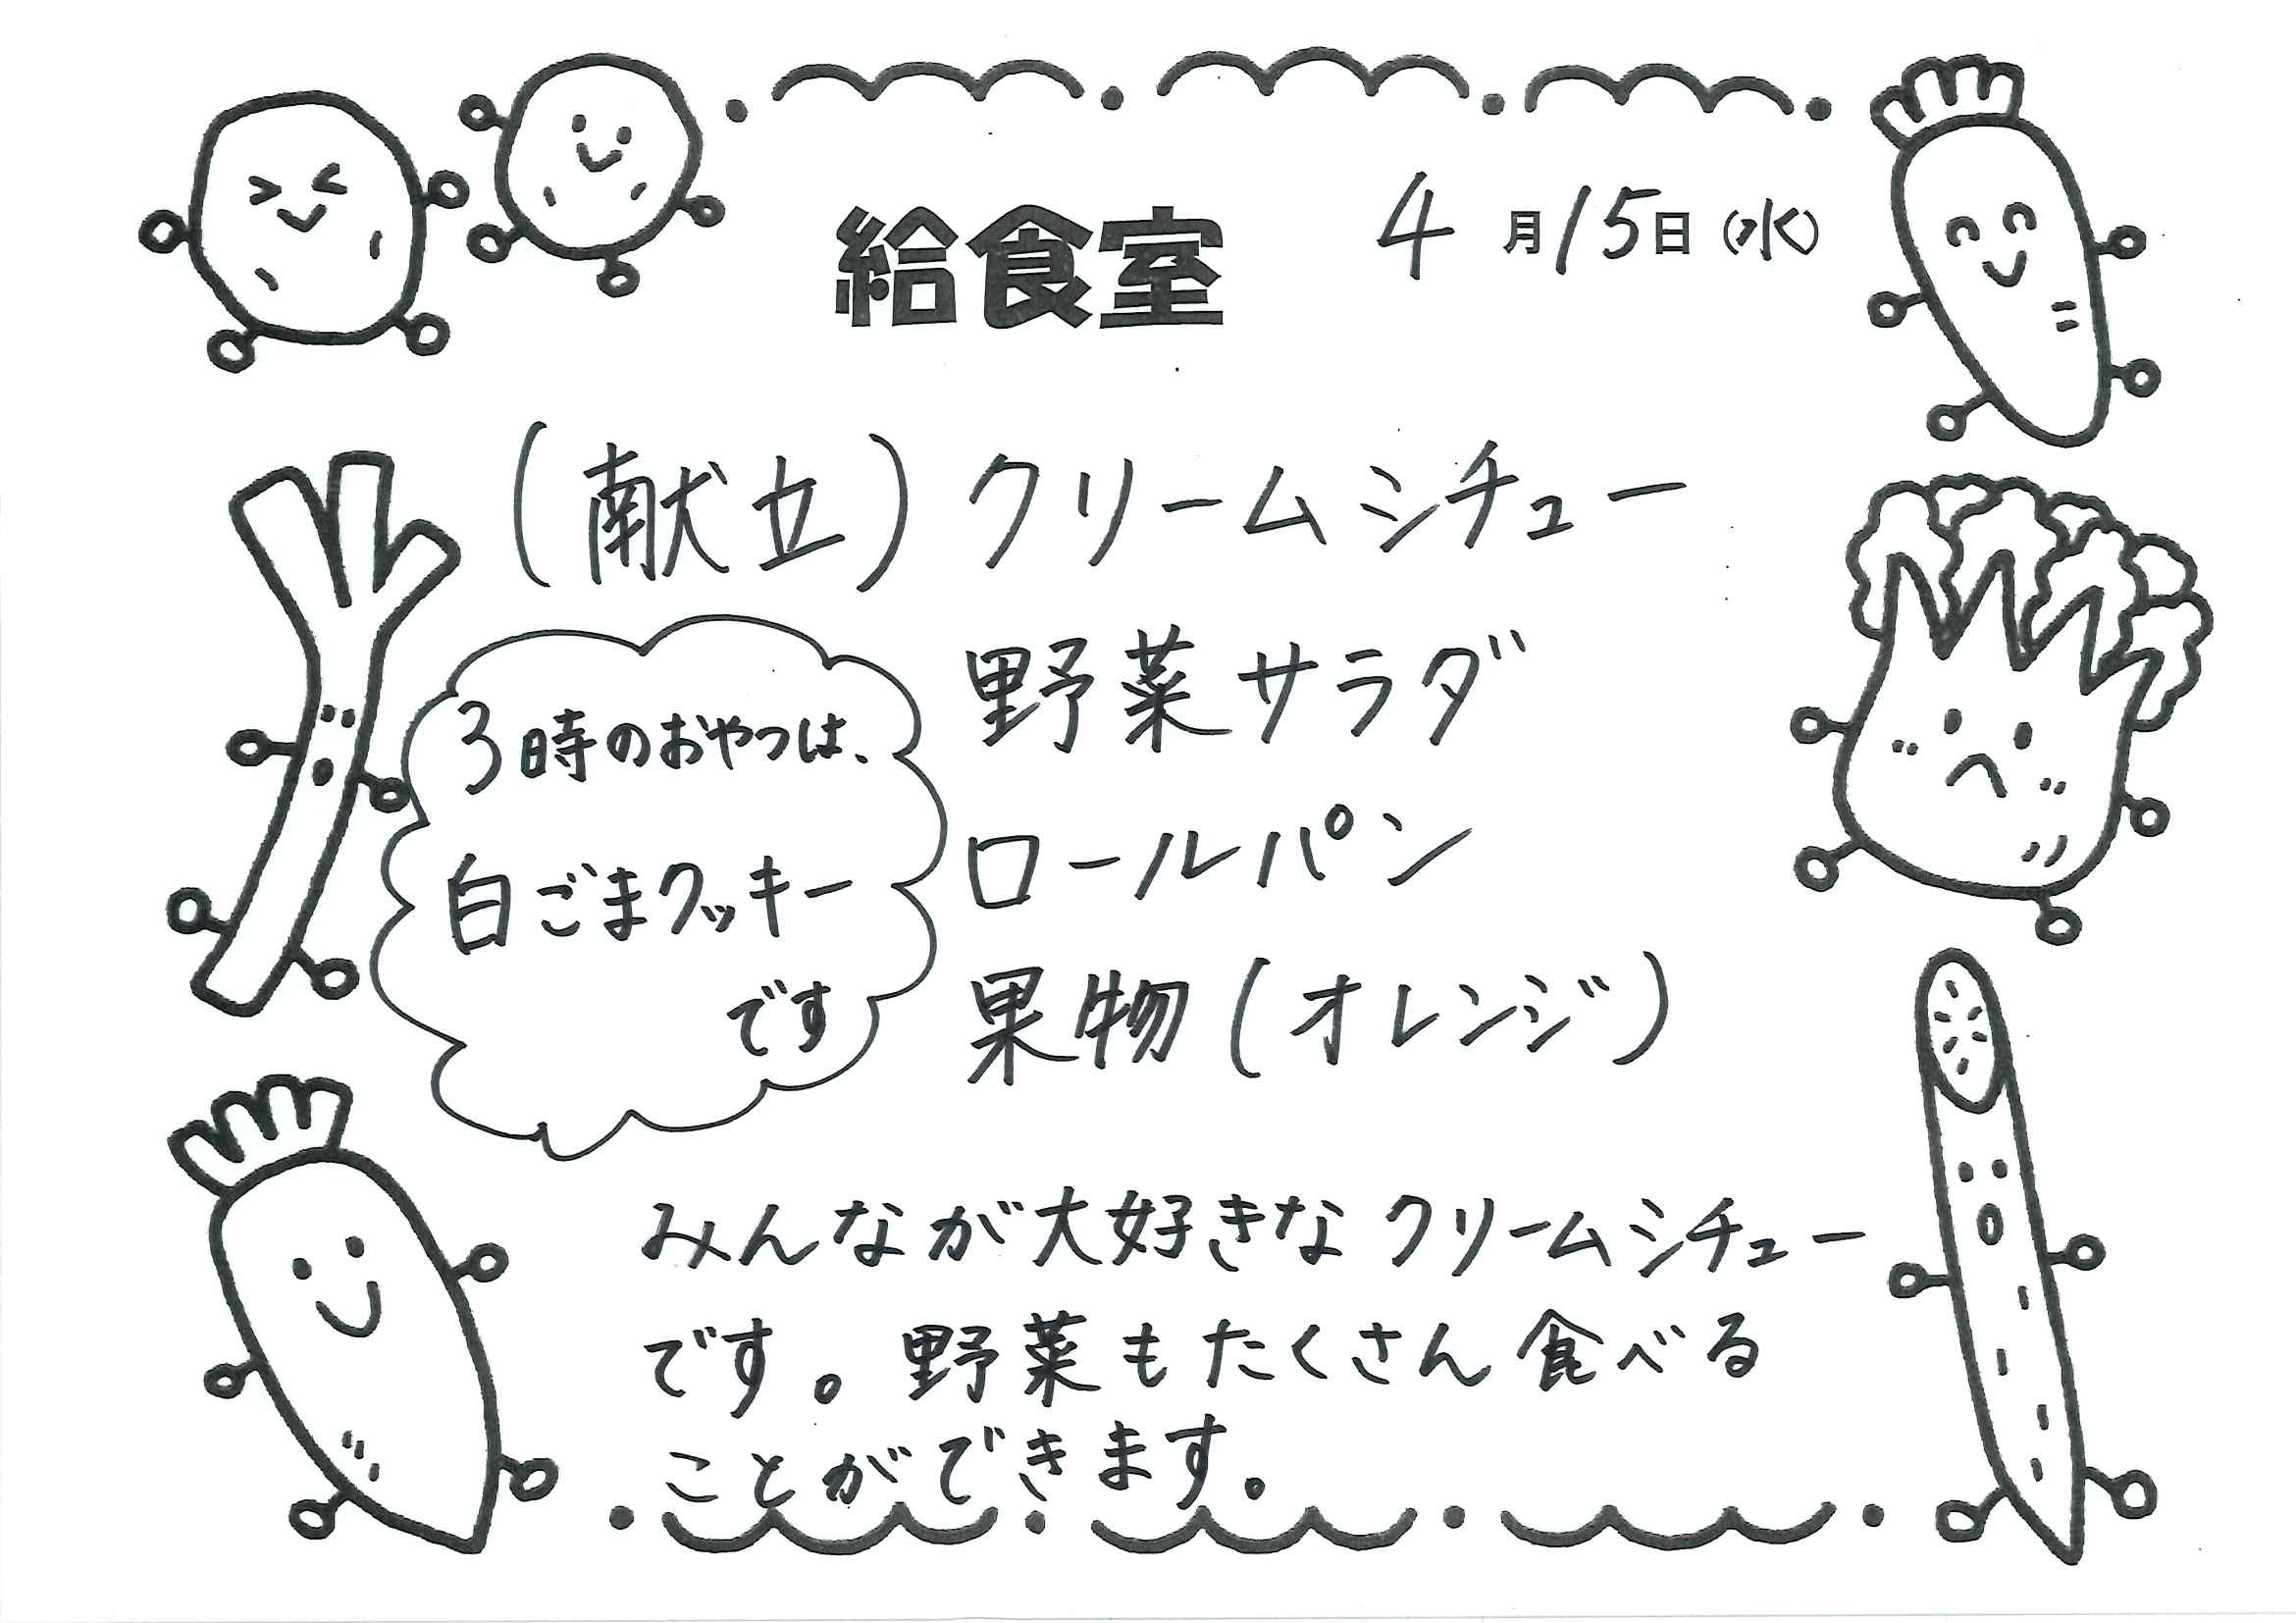 給食室
4月15日(水)
(献立)クリームシチュー
野菜サラダ
ロールパン
果物(オレンジ)
3時のおやつは、
白ごまクッキー
です
みんなが大好きなクリームシチュー
です。野菜もたくさん食べる
ことができます。